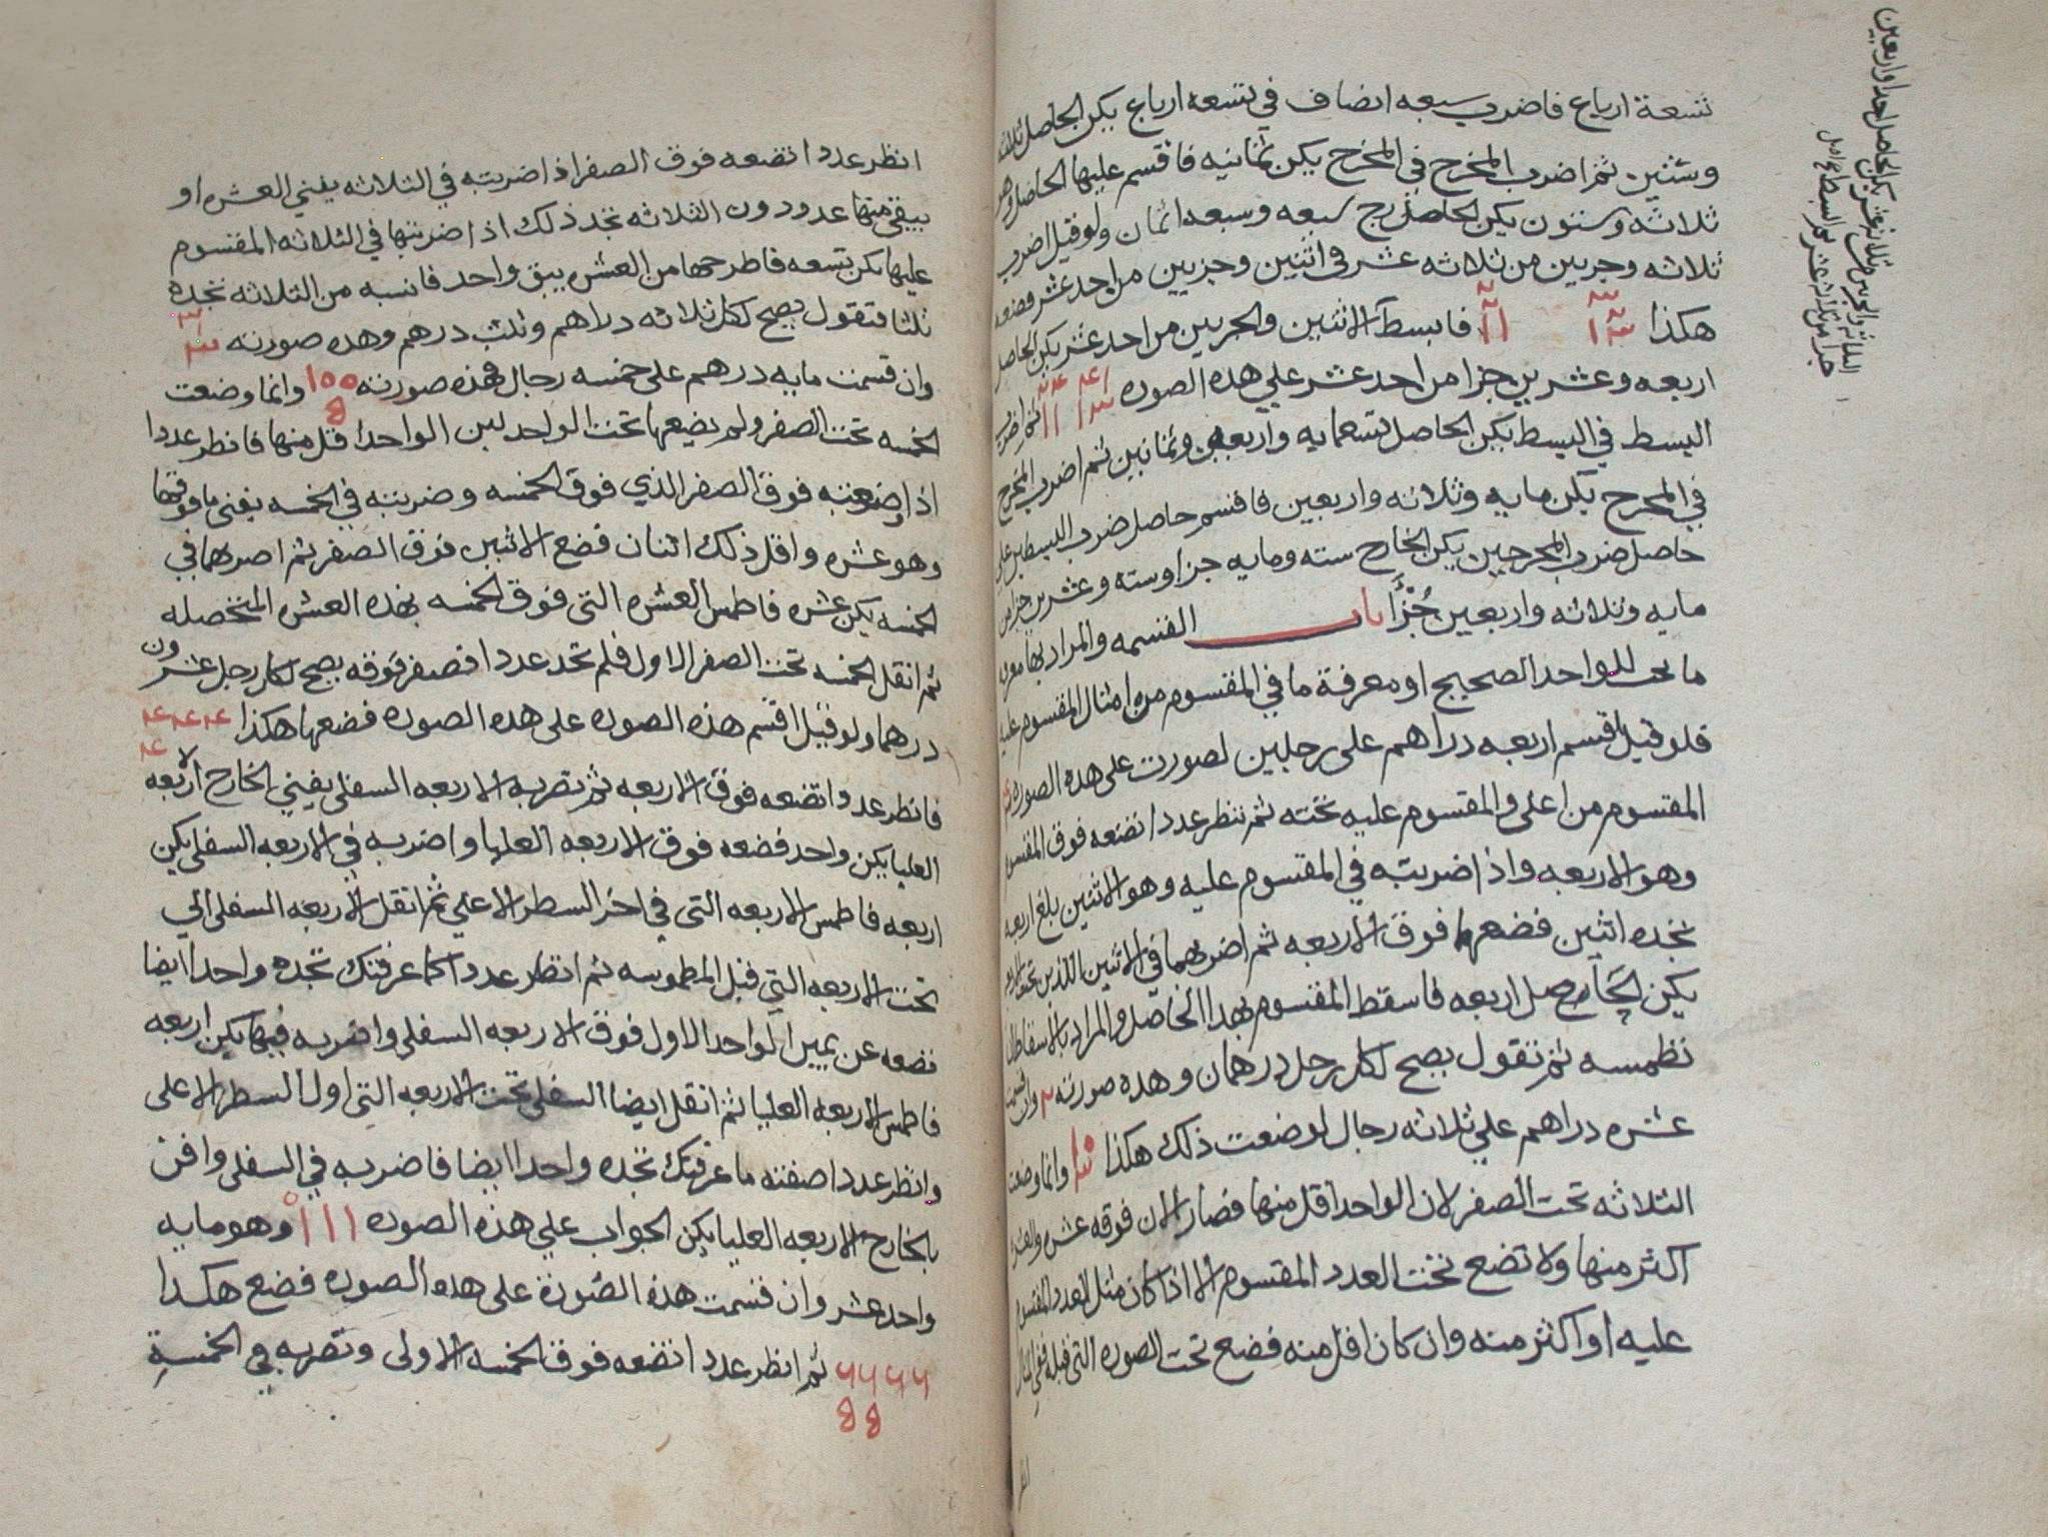 تسعة ارباع فاضرب سبعه انصاف في تسعه ارباع يكن الحاصل ثلاثه
وستين ثم اضرب المخرج في المخرج يكن ثمانيه فاقسم عليها الحاصل وهو
ثلاثه وستون يكن الخارج سبعه وسبعه اثمان ولو قيل اضرب
ثلاثه وجزيين من ثلاثه عشر في اثنين وجزيين من احد عشر فضعه
هكذا فابسط الاثنين والجزيين من احد عشر يكن الحاصل
اربعه وعشرين جزا من احد عشر علي هذه الصوره ثم اضرب
البسط في البسط يكن الحاصل تسعمايه واربعه وثمانين ثم اضرب المخرج
في المخرج يكن مايه وثلاثه واربعين فاقسم حاصل ضرب البسطين علي
حاصل ضرب المخرجين يكن الخارج سته ومايه جزا وسته وعشرين جزا من
مايه وثلاثه واربعين جُزْءًا باب القسمه والمراد بها معرفة
ما يخص للواحد الصحيح او معرفة ما في المقسوم من امثال المقسوم عليه
فلو قيل اقسم اربعه دراهم على رجلين لصورت على هذه الصوره
المقسوم من اعلى والمقسوم عليه تحته ثم تنظر عددا تضعه فوق المقسوم
وهو الاربعه واذا ضربته في المقسوم عليه وهو الاثنين بلغ اربعه
تجده اثنين فضعهما فوق الاربعه ثم اضربهما في الاثنين اللذين تحت الاربعه
يكن الحاصل اربعه فاسقط المقسوم بهذا الحاصل والمراد بالاسقاط ان
تطمسه ثم تقول يصح لكل رجل درهمان وهذه صورته ٢ وان قسمت
عشره دراهم علي ثلاثه رجال لوضعت ذلك هكذا وانما وضعت
الثلاثه تحت الصفر لان الواحد اقل منها فصار الان فوقه عشره والعشره
اكثر منها ولا تضع تحت العدد المقسوم الا اذا كان مثل العدد المقسوم
عليه او اكثر منه وان كان اقل منه فضع تحت الصوره التي قبله ففي المثال
انظر عددا تضعه فوق الصفر اذا ضربته في الثلاثه يفني العشره او
يبقي منها عدد دون الثلاثه تجد ذلك اذا ضربتها في الثلاثه المقسوم
عليها يكن تسعه فاطرحها من العشره يبق واحد فانسبه من الثلاثه تجده
ثلثا فتقول يصح لكل ثلاثه دراهم وثلث درهم وهذه صورته
وان قسمت مايه درهم على خمسه رجال فهذه صورته وانما وضعت
الخمسه تحت الصفر ولم تضعها تحت الواحد لان الواحد اقل منها فانظر عددا
اذا وضعته فوق الصفر الذي فوق الخمسه وضربته في الخمسه يفني ما فوقها
وهو عشره واقل ذلك اثنان فضع الاثنين فوق الصفر ثم اضربهما في
الخمسه يكن عشره فاطمس العشره التي فوق الخمسه بهذه العشره المتحصله
ثم انقل الخمسه تحت الصفر الاول فلم تجد عددا فصفر فوقه يصح لكل رجل عشرون
درهما ولو قيل اقسم هذه الصوره على هذه الصوره فضعها هكذا ٤٤٤
٤
فانظر عددا تضعه فوق الاربعه ثم تضربه الاربعه السفلى يفني الخارج الاربعه
العليا يكن واحد فضعه فوق الاربعه العليا واضربه في الاربعه السفلى يكن
اربعه فاطمس الاربعه التي في اخر السطر الاعلي ثم انقل الاربعه السفلى الي
تحت الاربعه التي قبل المطموسه ثم انظر عددا كما عرفتك تجده واحدا ايضا
تضعه عن يمين الواحد الاول فوق الاربعه السفلى واضربه فيها يكن اربعه
فاطمس الاربعه العليا ثم انقل ايضا السفلى تحت الاربعه التي اول السطر الاعلى
وانظر عددا صفته ما عرفتك تجده واحدا ايضا فاضربه في السفلى وافن
بالخارج الاربعه العليا يكن الجواب علي هذه الصوره ١١١ وهو مايه
واحد عشر وان قسمت هذه الصورة على هذه الصوره فضع هكذا
٦٦٦٦ ثم انظر عددا تضعه فوق الخمسه الاولى وتضربه في الخمسة